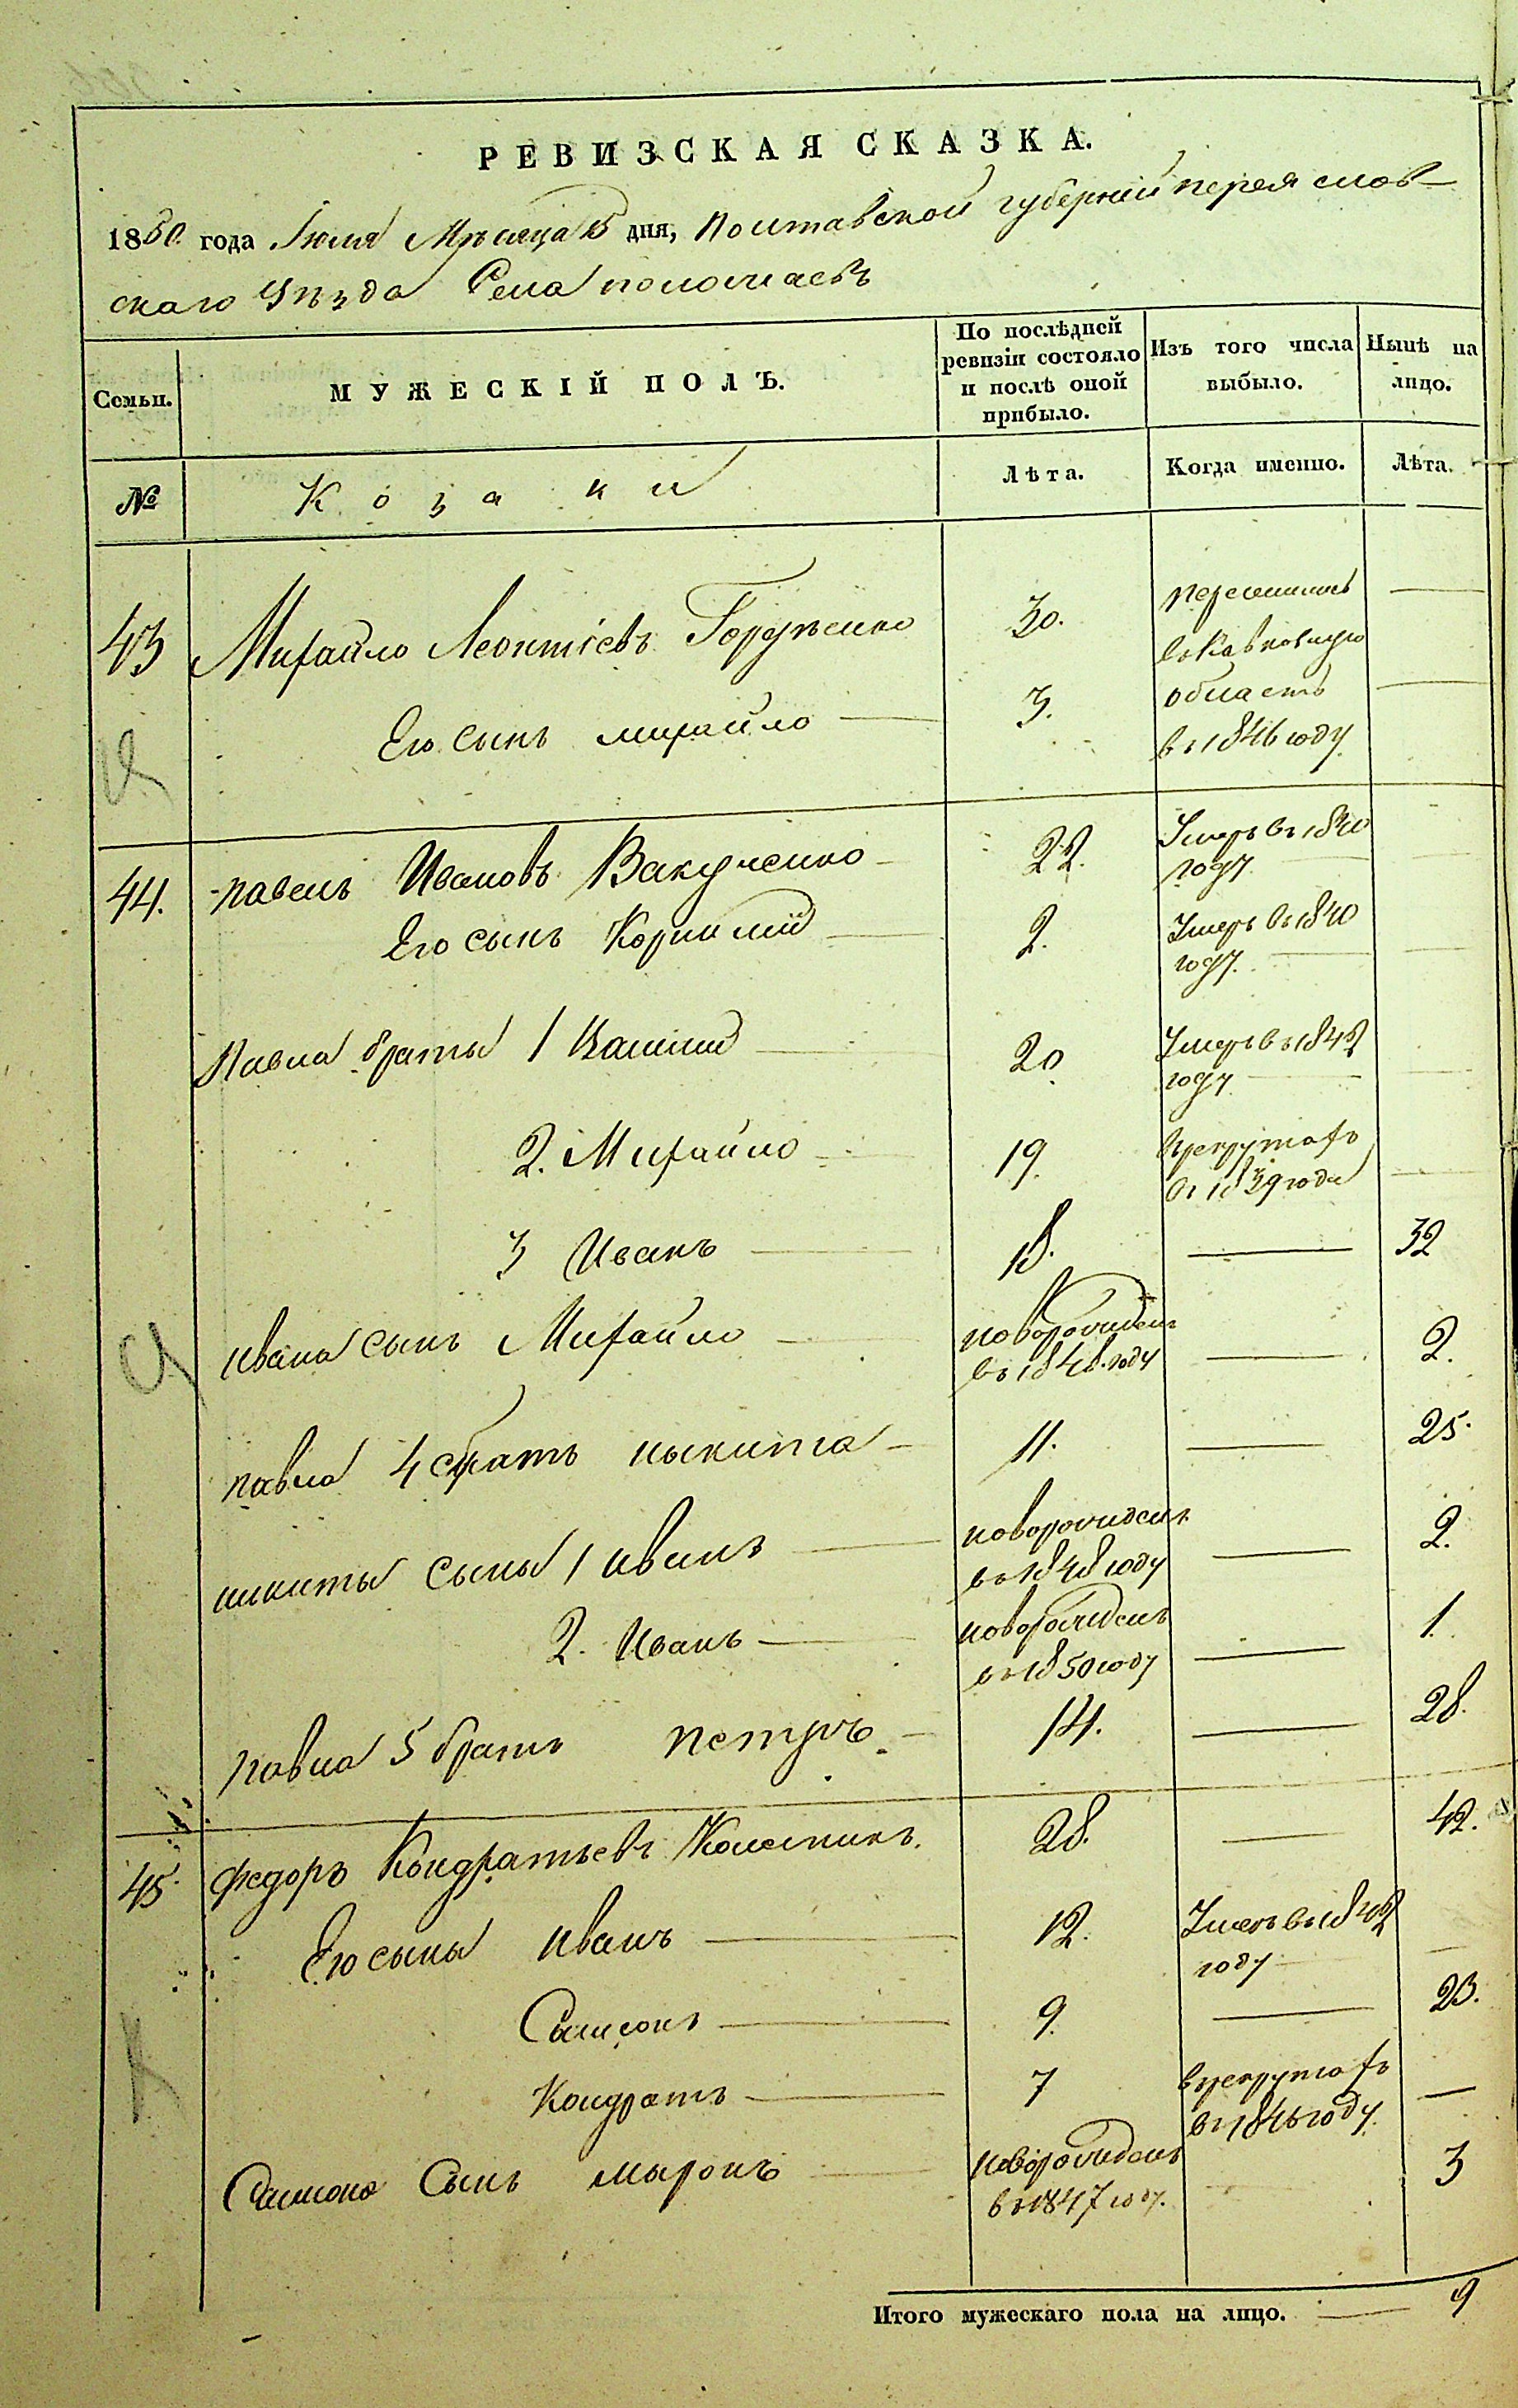 РЕВИЗСКАЯ СКАЗКА.
1850. года Іюля Мѣсяца дня, Полтавской губерніи переяслов-
скаго Уѣзда Села
Семьи. МУЖЕСКІЙ ПОЛЪ. По послѣдней ревизіи состояло и послѣ оной прибыло. Изъ того числа выбыло. Нынѣ на лицо.
№ Козаки Лѣта. Когда именно. Лѣта.
43 Михайло Леонтіевъ 30. переселились
въ Кавказскую
Его сынъ михайло 3. область
въ 1846 году
44. павелъ Ивановъ Вакуленко 22. Умеръ въ 1840
году
Его сынъ Корнилій 2. Умеръ въ 1840
году.
Павла браты 1 20 Умеръ въ 1842
году
2. Михайло 19. Врекрутахъ
въ 1839 года
3 Иванъ 18. 32
ивана сынъ Михайло новорожденъ
въ 1848 году 2.
павла 4 братъ никита 11. 25.
никиты сыны 1 иванъ новорожденъ
въ 1848 году 2.
2. Иванъ новорожденъ
въ 1850 году 1.
павла 5 братъ петръ 14. 28.
45. федоръ Кондратьевъ Колесникъ. 28. 42.
Его сыны иванъ 12. Умеръ въ 1842
году
Самсонъ 9. 23.
Кондратъ 7 врекрутахъ
въ 1846 году.
Самсона Сынъ миронъ новорожденъ
въ 1847 году. 3
Итого мужескаго пола на лицо. 9